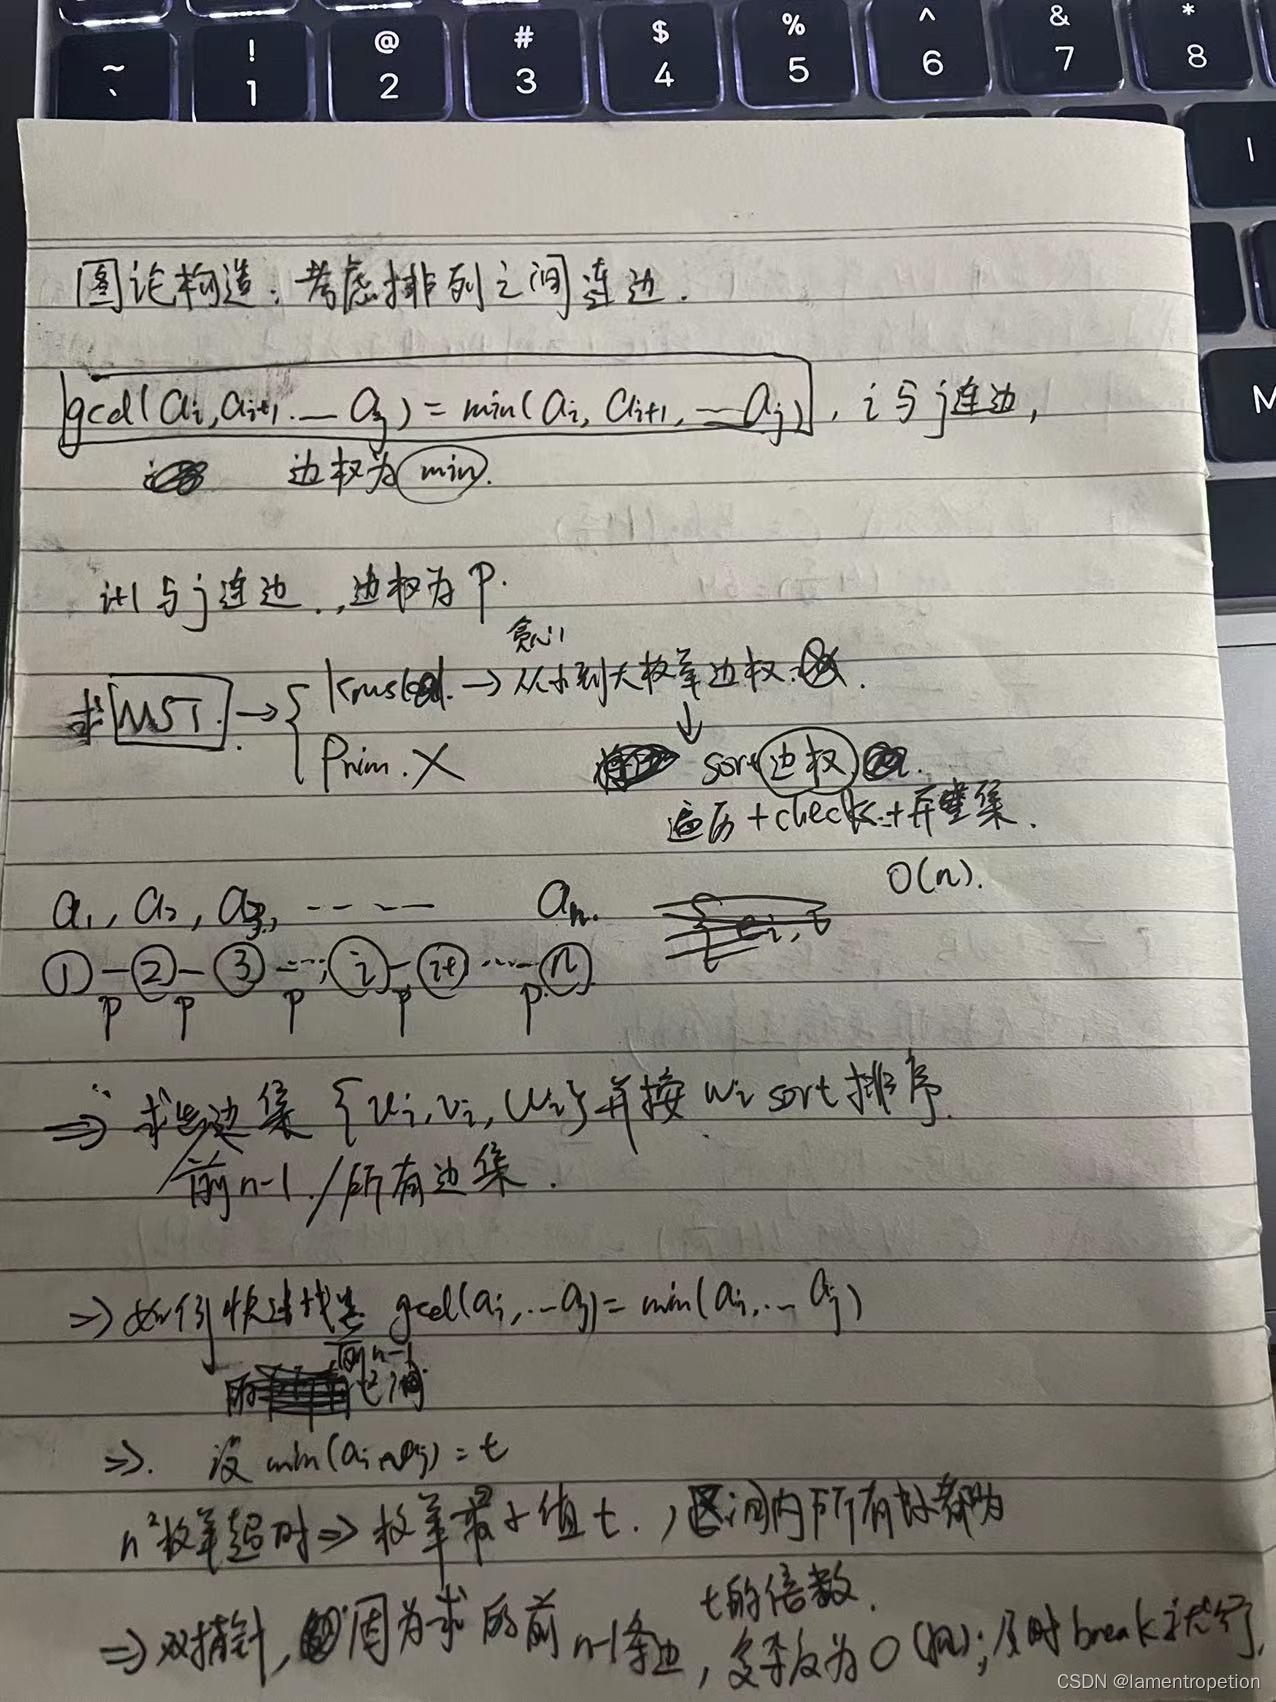 ~ ! @ # $ % ^ & *
` 1 2 3 4 5 6 7 8
I
M
图论构造：考虑排列之间连边.
gcd(ai,ai+1...aj)=min(ai,ai+1,...aj), i与j连边,
边权为min.
i+1与j连边.,边权为p.
贪心
求MST.→{ kruskal.→从小到大枚举边权.
Prim.X
↓
sort边权
遍历+check+并查集.
O(n).
a1,a2,a3,...... an.
①-②-③-...i-i+1...-n
p p p p p.
⇒求出边集{ui,vi,wi}并按wi sort排序.
前n-1./所有边集.
⇒如何快速找出 gcd(ai,...aj)=min(ai,...aj)
前n-1
的 区间
⇒. 设min(ai~aj)=t
n²枚举超时⇒枚举最小值t.,区间内所有数都为
t的倍数.
⇒双指针,因为求的前n-1条边,复杂度为O(n);及时break就行.
CSDN @lamentropetion